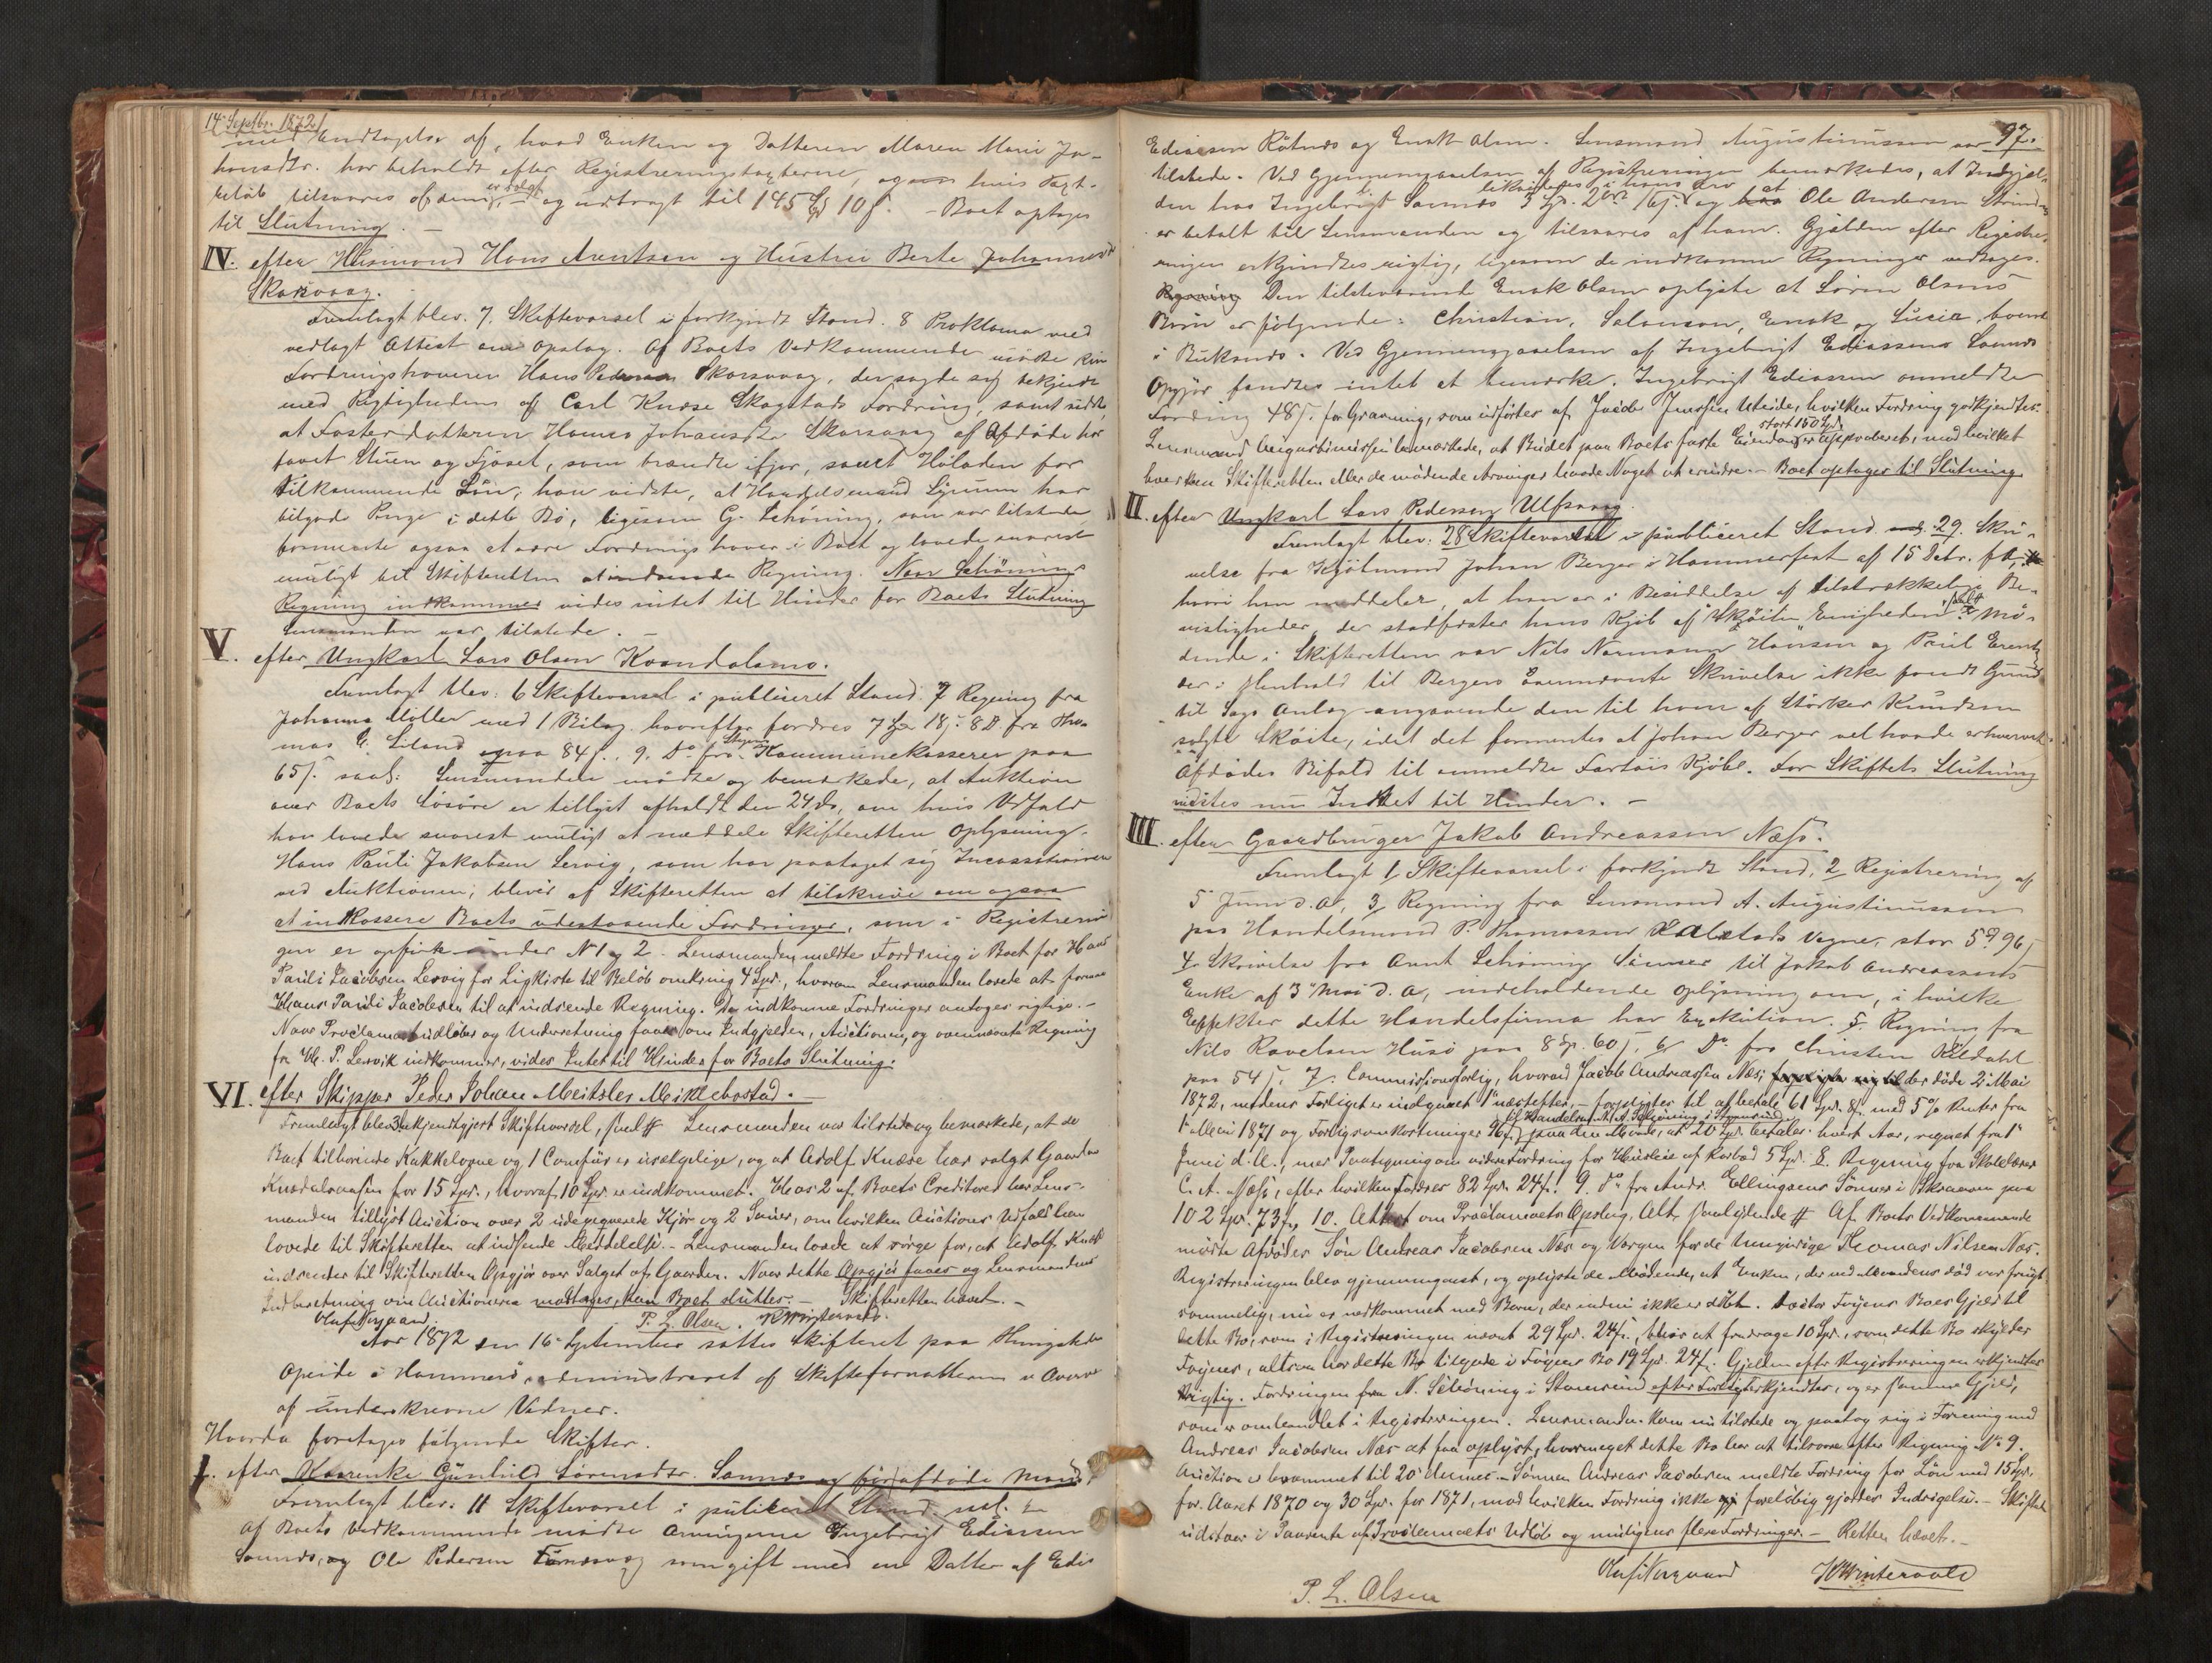 14 Septbr. 1872
med Undtagelse af, hvad Enken og Datteren Maren Marie Jo-
hansdtr. har beholdt efter Registreringstaxterne, og hvis Taxt-
beløb tilsvares af dem, er solgt og udbragt til 145 Spd 10 s. – Boet optages
til Slutning. –
IV. efter Husmand Hans Arentsen og Hustru Berte Johannesdr
Skarsvaag.
Fremlagt blev: 7. Skiftevarsel i forkyndt Stand. 8 Proklama med
vedlagt Attest om Opslag. Af Boets Vedkommende mødte kun
Fordringshaveren Hans Pedersen Skarsvaag, der sagde sig bekjendt
med Rigtigheden af Carl Knøse Skogstads Fordring, samt
at Fosterdatteren Hanna Johansdtr Skarsvaag af Afdøde har
faaet Stuen og Fjøset, som brændte ifjor, samt Høladen for
tilkommende Løn, han vidste, at Handelsmand Lysum har
tilgode Penge i dette Bo, ligesom G. Schøning, som var tilstede
formente ogsaa at være Fordringshaver i Boet og lovede snarest
muligt til Skifteretten at indsende Regning. Naar Schønings
Regning indkommer vides intet til Hinder for Boets Slutning
Lensmanden var tilstede. –
V. efter Ungkarl Lars Olsen Kvandalsmo.
Fremlagt blev: 6 Skiftevarsel i publiceret Stand. 7 Regning fra
Johanna Møller med 1 Bilag, hvorefter fordres 7 Spd 18 s. 8 Do fra Tho-
mas E. Liland paa 84 s. 9. Do fra Kommunekasserer paa
65 s. saal: Lensmanden mødte og bemærkede, at Auktion
over Boets Løsøre er tillyst afholdt den 24 ds, om hvis Udfald
han lovede snarest muligt at meddele Skifteretten Oplysning.
Hans Pauli Jakobsen Lervig, som har paataget sig Incassationen
ved Auktionen, bliver af Skifteretten at tilskrive om ogsaa
at indkassere Boets udestaaende Fordringer, som i Registrerin-
gen er opført under N 1 og 2. Lensmanden meldte Fordring i Boet for Hans
Pauli Jacobsen Lervig for Ligkiste til Beløb omkring 4 Spd., hvorom Lensmanden lovede at formaa
Hans Pauli Jacobsen til at indsende Regning. De indkomne Fordringer antoges rigtige. –
Naar Proclamaet udløber og Underretning faaes om Indgjelden, Auctionen, og ovennævnte Regning
fra H. P. Lervik indkommer, vides Intet til Hinder for Boets Slutning.
VI. efter Skipper Peder Johan Meitsler Meiklebostad. –
Fremlagt blev 3. bekjendtgjort Skiftevarsel, saal. # Lensmanden var tilstede og bemærkede, at de
Boet tilhørende Kakkelovne og 1 Comfür er usælgelige, og at Adolf Knøse har solgt Gaarden
for 15 Spd., hvoraf 10 Spd. er indkommet. Hos 2 af Boets Creditorer har Lens-
manden tillyst Auction over 2 udegangnede Kjør og 2 Sauer, om hvilken Auctions Udfald han
lovede til Skifteretten at indsende Meddelelse. – Lensmanden lovede at sørge for, at Adolf Knøse
indsender til Skifteretten Opgjør over Salget af Gaarden. Naar dette Opgjør faaes og Lensmandens
Indberetning om Auctionerne modtages, kan Boet sluttes. – Skifteretten hævet. –
Oluf Norgaard. P. L. Olsen. K Wintervold.
Aar 1872 den 16 September sattes Skifteret paa Thingstedet
Opeide i Hammerø, administreret af Skifteforvalteren i Overvær
af underskrevne Vidner.
Hvorda foretoges følgende Skifter.
I. efter Gunhild Sørensdtr. Sannæs og før afdøde Mand
Fremlagt blev: 11 Skiftevarsel i publiceret Stand. saal.
Af Boets Vedkommende mødte Arvingerne Ingebrigt Ediassen
Sannæs, og Ole Pedersen som gift med en Datter af Edis
97.
Ediassen Rotnæs og Enok Olsen. Lensmand Augustinussen var
tilstede. Ved Gjennemgaaelsen af Registreringen bemærkedes, at Indgjæl-
den hos Ingebrigt Sannæs likvideres i hans Arv og at Ole Andersen
er betalt til Lensmanden og tilsvares af ham. Gjælden efter Registre-
ringen erkjendtes rigtig, ligesom de indkomne Regninger vedtoges.
Den tilstedeværende Enok Olsen oplyste at Søren Olsens
Børn er følgende: Christian, Salomon, Enok og Lucie, boende
i Buksnæs. Ved Gjennemgaaelsen af Ingebrigt Ediassens Sannæs
Opgjør fandtes intet at bemærke. Ingebrigt Ediassen anmeldte
Fordring 48 s. for Gravning, som udførtes af Jacob Jenssen Uteide, hvilken Fordring godkjendtes.
Lensmand Augustinussen bemærkede, at Budet paa Boets faste Eiendom stort 150 Spd. er approberet, mod hvilket
hverken Skifteretten eller de mødende Arvinger havde Noget at erindre. – Boet optages til Slutning
II. efter Ungkarl Lars Pedersen Ulfsvaag.
Fremlagt blev: 28 Skiftevarsel i publiceret Stand. 29. Skri-
velse fra Kjøbmand Johan Berger i Hammerfest af 15 Febr.
hvori han meddeler, at han er i Besiddelse af tilstrækkelige Be-
visligheder, der stadfæster hans Kjøb af Skøiten Enigheden. saal # Mø-
dende i Skifteretten var Nils Normann Hansen og Paul
der i Henhold til Bergers ovennævnte Skrivelse ikke fandt Grund
til Sags Anlæg angaaende den til ham af Størker Knudsen
solgte Skøite, idet det formentes at Johan Berger vel havde erhvervet
Afdødes Bifald til anmeldte Fartøis Kjøb. For Skiftets Slutning
vidstes nu Intet til Hinder. –
III. efter Gaardbruger Jakob Andreassen Næss.
Fremlagt 1/ Skiftevarsel i forkyndt Stand, 2 Registrering af
5 Juni d. A, 3/ Regning fra Lensmand A. Augustinussen
paa Handelsmand P. Thomassen Kalstads Vegne, stor 5 Spd 96 s
4. Skrivelse fra Arent Schønings Sønner til Jakob Andreassens
Enke af 3 Mai d. A, indeholdende Oplysning om, i hvilke
Effekter dette Handelsfirma har Exekution. 5. Regning fra
Nils Ravelsen Husø paa 8 Sp. 60 s. 6/ Do fra Christen Kildahl
paa 54 s. 7. Commissionsforlig, hvorved Jacob Andreassen Næs, der døde 2 Mai
1872, medens Forliget er indgaaet 1 næstefter, – forpligtes til at betale 61 Spd. 8 s. med 5% Renter fra
1 Mai 1871 og Forligsomkostninger 96 s. til Handelsm. N. A. Schjøning i Stamsund paa den Maade, at 20 Spd. betales hvert Aar, regnet fra 1
Juni d. A., med Paategning om videre Fordring for Husleie af Rorbod 5 Spd. 8. Regning fra Skolelærer
C. A. Næss, efter hvilken fordres 82 Spd. 24 s. 9. Do fra Andr. Ellingsens Sønner i Skraaven paa
102 Spd. 73 s, 10. Attest om Proclamaets Opslag. Alt saalydende # Af Boets Vedkommende
mødte Afdødes Søn Andreas Jacobsen Næs og Værgen for de Umyndige Thomas Nilsen Næs.
Registreringen blev gjennemgaaet, og oplyste de Mødende, at Enken, der ved Mandens død var frugt-
sommelig, nu er nedkommet med Barn, der endnu ikke er døbt. Doctor Foyens Boes Gjæld til
dette Bo, som i Registreringen nævnt 29 Spd. 24 s., bliver at fradrage 10 Spd., som dette Bo skylder
Foyens, altsaa har dette Bo tilgode i Foyens Bo 19 Spd. 24 s. Gjelden efter Registreringen erkjendtes
Rigtig. Fordringen fra N. Schøning i Stamsund efter Forliget erkjendtes, og er samme Gjeld,
som er omhandlet i Registreringen. Lensmanden kom nu tilstede og paatog sig i Forening med
Andreas Jacobsen Næs at faa oplyst, hvormeget dette Bo har at tilsvare efter Regning No 9.
Auction er berammet til 20 dennes. – Sønnen Andreas Jacobsen meldte Fordring for Løn med 15 Spd.
for Aaret 1870 og 30 Spd. for 1871, mod hvilken Fordring ikke foreløbig gjordes Indsigelse. – Skiftet
udstaar i Paavente af Proclamaets Udløb og muligens flere Fordringer. – Retten hævet. –
Oluf Norgaard K Wintervold
P. L. Olsen